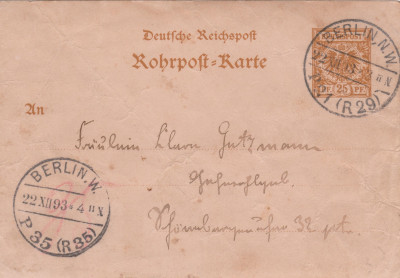 Deutsche Reichspost
Rohrpost-Karte
BERLIN, N.W.
P 1 (R 29)
25 PF.
An
Fräulein Clara Gutzmann
Schönebergerufer 32 ptr.
BERLIN. W.
22 XII 93. 4
P 35 (R 35)